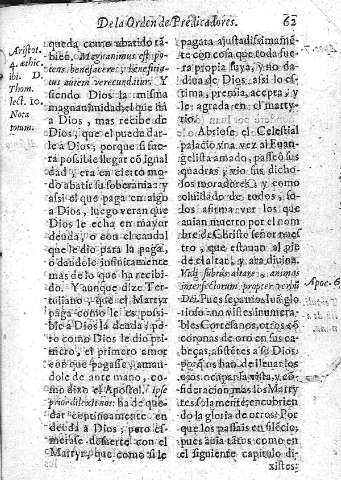 De la Orden de Predicadores. 62
Aristot.
4. æthic.
ibi. D.
Thom.
lect. 10.
Nota
totum.
queda como abatido tã
bien. Magnanimus est po-
tens benefacere; beneficia-
tus autem verecundatur. Y
siendo Dios la misma
magnanimidad, el que dà
a Dios, mas recibe de
Dios, que el pueda dar-
le a Dios, porque si fue-
ra possible llegar cõ igual
dad, era en cierto mo-
do abatir su soberania: y
assi el que paga en algo
a Dios, luego veran que
Dios le echa en mayor
deuda, o con el caudal
que le dio para la paga,
o dandole infinitamente
mas de lo que ha recibi-
do. Y aunque dize Ter-
toliano, que el Martyr
paga como le es possi-
ble a Dios la deuda; pe-
ro como Dios le dio pri-
mero, el primero amor
con que pagasse, aman-
dole de ante mano, co-
mo dixo el Apostol, Ipse
prior dilexit nos: ha de que
dar continuamente en
deuda a Dios; pero es-
merase de suerte con el
Martyr, que como si le
pagata ajustadissimamẽ-
te con cosa que toda fue
ra propia suya, y no da-
diua de Dios, assi lo es-
tima, premia, acepta, y
le agrada en el marty-
rio.
Abriose el Celestial
palacio vna vez al Euan-
gelista amado, passeò sus
quadras, vio sus dicho-
sos moradores, y como
oluidado de todos, so-
los afirma ver los que
auian muerto por el nom
bre de Christo señor nues
tro, que estauan al pie
de el altar, y ara diuina.
Vidi subtus altare, animas
interfectorum propter verbũ
Dei. Pues segun
Apoc. 6.
cabeças, assistẽtes a Dios:
pero os han de lleuar los
ojos, ocupar la vista, y cõ
sideracion mas los Marty
res solamente; encubriendo
la gloria de otros? Por
que los passais en silẽcio;
pues auia tãtos como en
el siguiente capitulo di-
xistes: